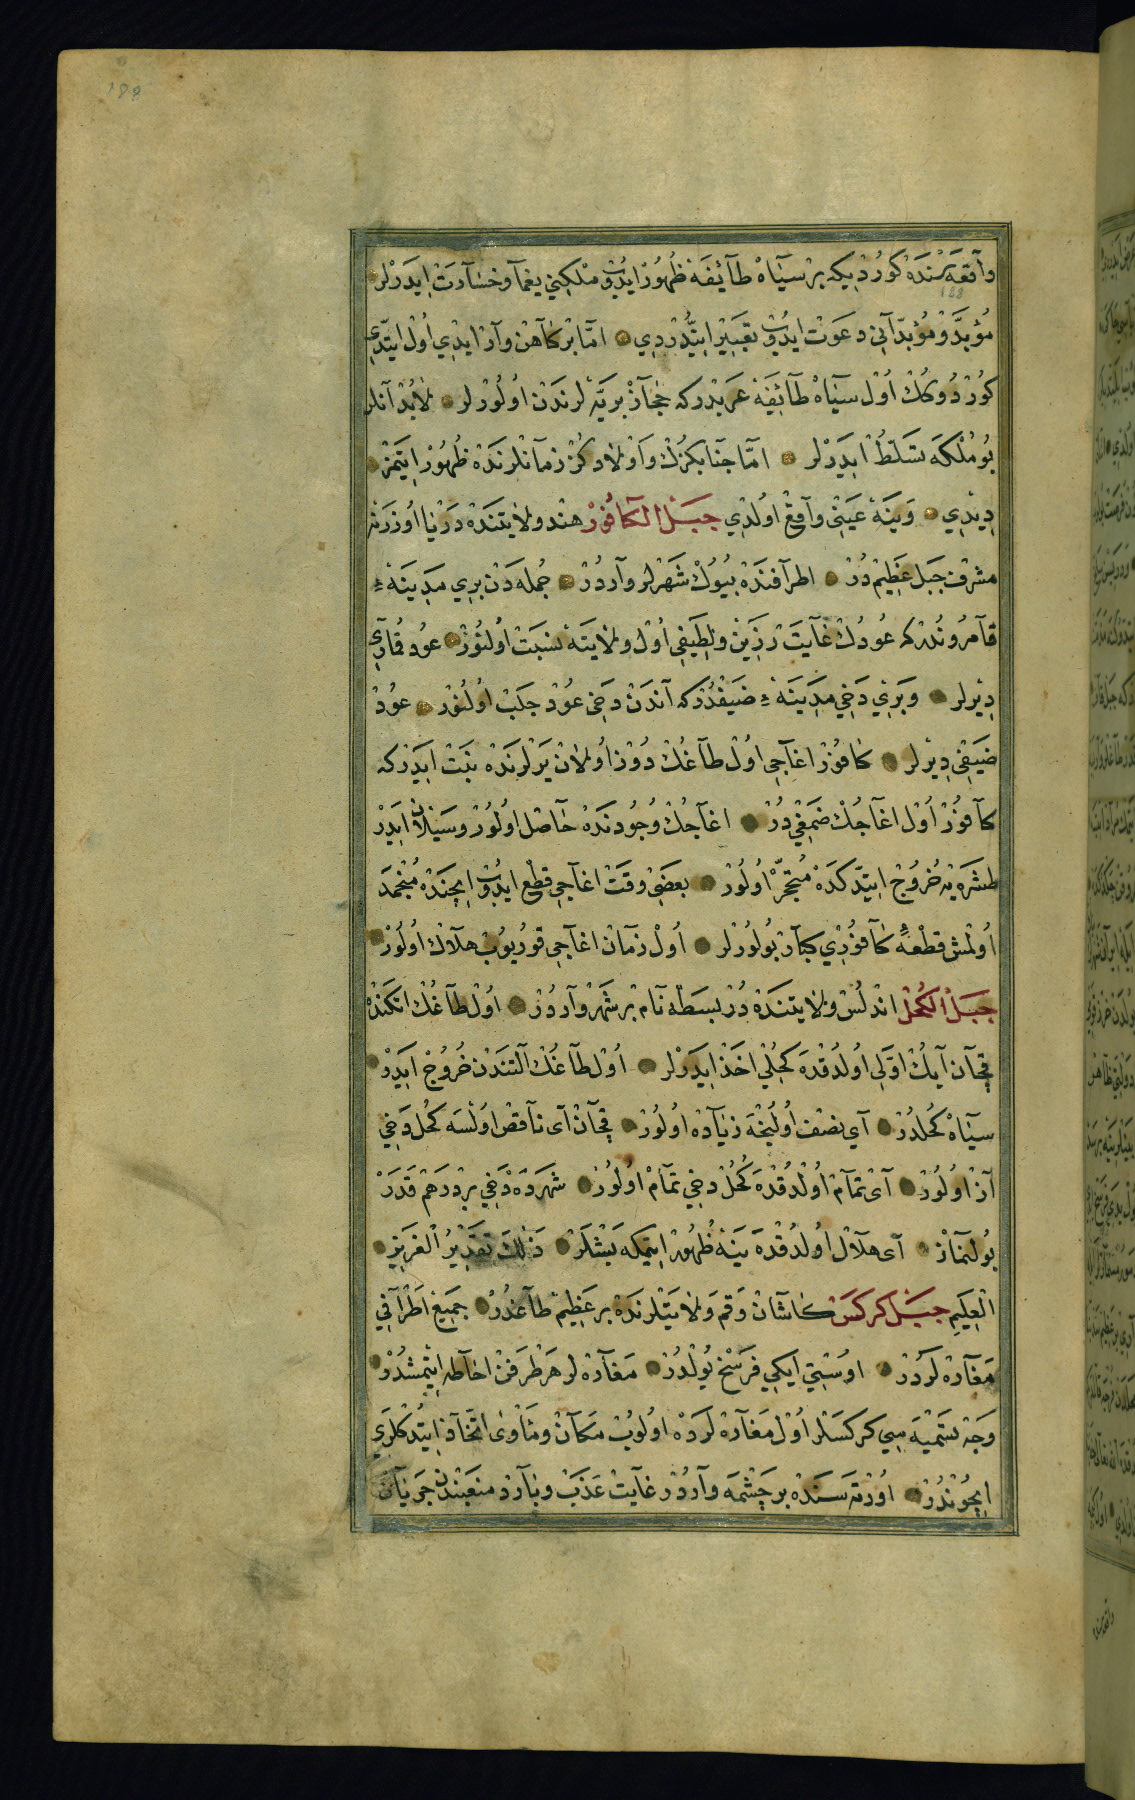 واقعه سنده كوردیكه بر سیاه طائفه ظهور ایدوب ملكنی یغما و خسارت ایدرلر
مؤبد و مؤبدانی دعوت ایدوب تعبیر ایتدردی امّا بر كاهن وار ایدی اول ایتدی
كوردوكك اول سیاه طائفهٔ عربدركه حجاز بریّه لرندن اولورلر لابد آنلر
بو ملكه تسلّط ایدرلر امّا جنابكزك و اولادكز زمانلرنده ظهور ایتمز
دیدی وینه عینی واقع اولدی جبل الكافور هند ولایتنده دریا اوزرنه
مشرف جبل عظیمدر اطرافنده بیوك شهرلر واردر جمله دن بری مدینهٔ
قامرونلدركه عودك غایت رزین ولطیفی اول ولایته نسبت اولنور عود قماری
دیرلر وبری دخی مدینهٔ ضیفدركه آندن دخی عود جلب اولنور عود
ضیفی دیرلر كافور اغاجی اول طاغك دوز اولان یرلرنده نبت ایدركه
كافور اول اغاجك ضمغیدر اغاجك وجودنده حاصل اولور وسیلان ایدر
طشره یه خروج ایتدكده متحجّر اولور بعضی وقت اغاجی قطع ایدوب ایچنده منجمد
اولمش قطعهٔ كافوری كبار بولورلر اول زمان اغاجی قوریوب هلاك اولور
جبل الكحل اندلس ولایتنده در بسطه نام بر شهر واردر اول طاغك اتكنده
قچان آیك اوّلی اولدقده كحلی اخذ ایدرلر اول طاغك آلتندن خروج ایدر
سیاه كحلدر آی نصف اولنجه زیاده اولور قچان آی ناقص اولسه كحل دخی
از اولور آی تمام اولدقده كحل دخی تمام اولور شهرده دخی بر درهم قدر
بولنماز آی هلال اولدقده ینه ظهور ایتمكه بشلر ذلك تقدیر العزیز
العلیم جبل كركس كاشان وقم ولایتلرنده بر عظیم طاغدر جمیع اطرافی
مغاره لردر اوستی ایكی فرسخ یولدر مغاره لر هر طرفن احاطه ایتمشدر
وجه تسمیه سی كركسلر اول مغاره لرده اولوب مكان ومأوی اتخاذ ایتدكلری
ایچوندر اورته سنده بر چشمه واردر غایت عذب وبارد منعبندن جریان